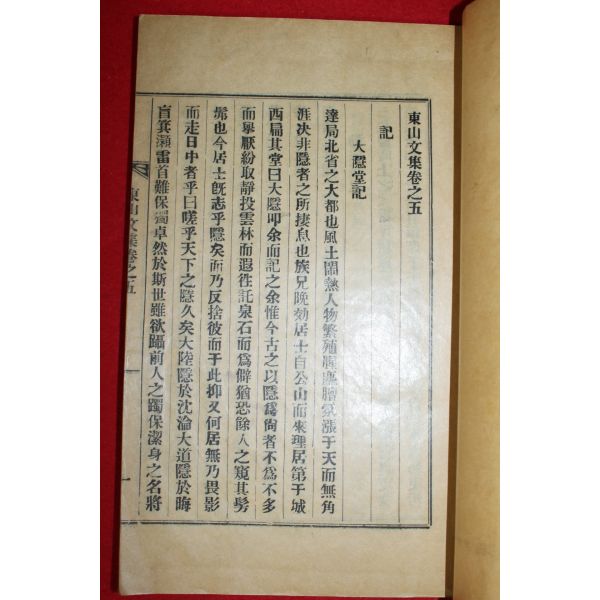 東山文集卷之五
記
大隱堂記
達局北省之大都也風土鬧熱人物繁殖腥塵膻氛漲于天而無角
涯决非隱者之所捿息也族兄晩劾居士自公山而來理居第于城
西扁其堂曰大隱叩余而記之余惟今古之以隱爲尙者不爲不多
而率厭紛取靜投雲林而遐徃託泉石而爲僻猶恐餘人之窺其髣
髴也今居士旣志乎隱矣而乃反捨彼而于此抑又何居無乃畏影
而走日中者乎曰嗟乎天下之隱久矣大陸隱於沈淪大道隱於晦
盲箕瀨雷首難保獨卓然於斯世雖欲躡前人之躅保潔身之名將
東山文集卷之五
一